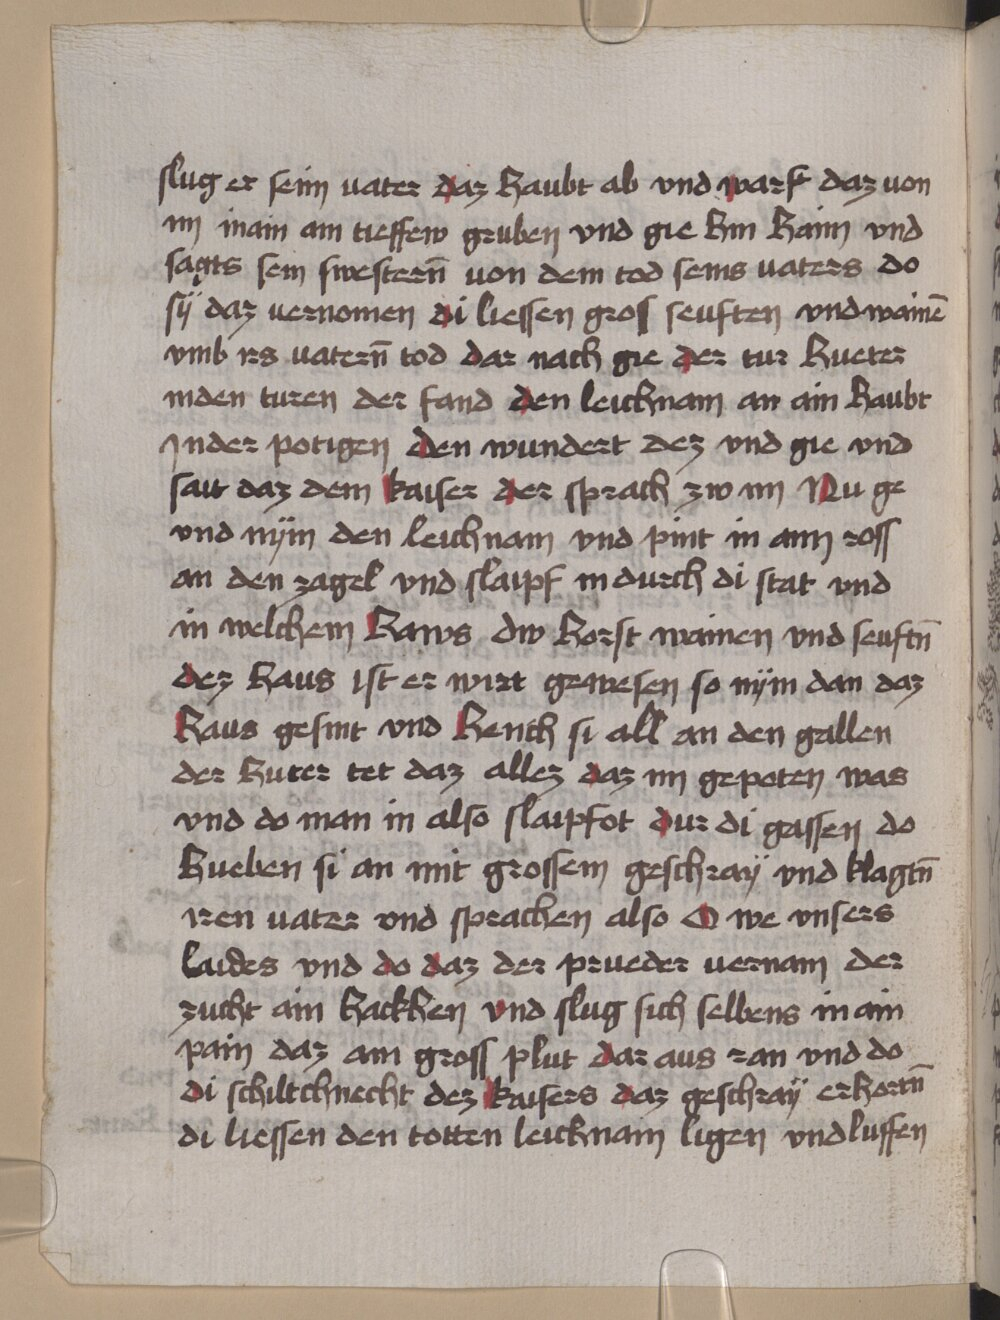 slug er seim vater daz haubt ab vnd warf daz von
im in ain ain tieffew gruben vnd gie hin haim vnd
sagts sein swesternn von dem tod seins vaters do
sÿ daz vernomen di liessen gros seuften vnd wainē
vmb irs vaternn tod dar nach gie der tur hueter
in den turen der fand den leichnam an ain haubt
In der potigen den wundert dez vnd gie vnd
sait daz dem kaiser der sprach zw im Nu ge
vnd nÿm den leichnam vnd pint in aim ross
an den zagel vnd slaipf in durch di stat vnd
in welchem haws dw horst wainen vnd seuftn̄
dez haus ist er wirt gewesen so nÿm dan daz
haus gesint vnd hench si all an den gallen
der huter tet daz allez daz im gepoten was
vnd do man in also slaipfot dur di gassen do
hueben si an mit grossem geschraÿ vnd klagtn̄
iren vater vnd sprachen also O we vnsers
laides vnd do daz der prueder vernam der
zucht ain hackhen vnd slug sich selbens in ain
pain daz ain gross plut dar aus ran vnd do
di schiltchnecht dez kaisers daz geschraÿ erhortn̄
di liessen den totten leichnam ligen vnd luffen